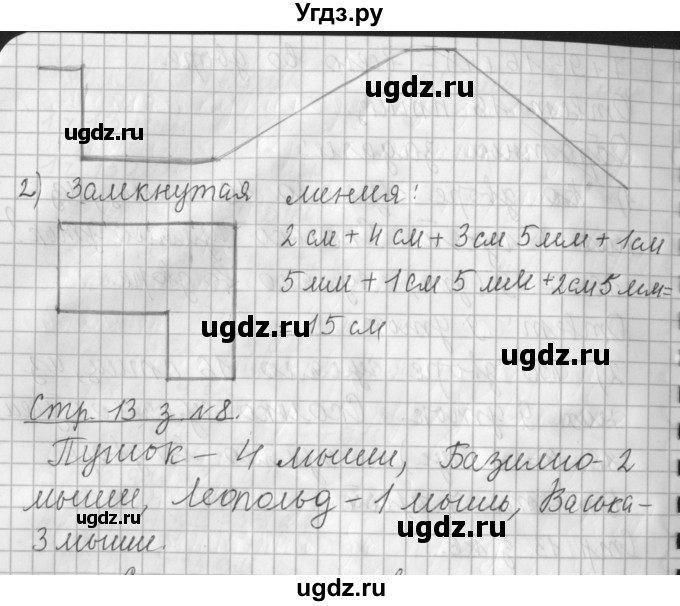 Угдз.ру
ugdz.ru
ugdz.ru
2) Замкнутая линия:
2 см + 4 см + 3 см 5 мм + 1 см
5 мм + 1 см 5 мм + 2 см 5 мм =
ugdz.ru
15 см
ugdz.ru
Стр. 13 з. №8.
Пушок – 4 мыши, Базилио – 2
мыши, Леопольд – 1 мышь, Васька –
ugdz.ru
3 мыши.
ugdz.ru
ugdz.ru